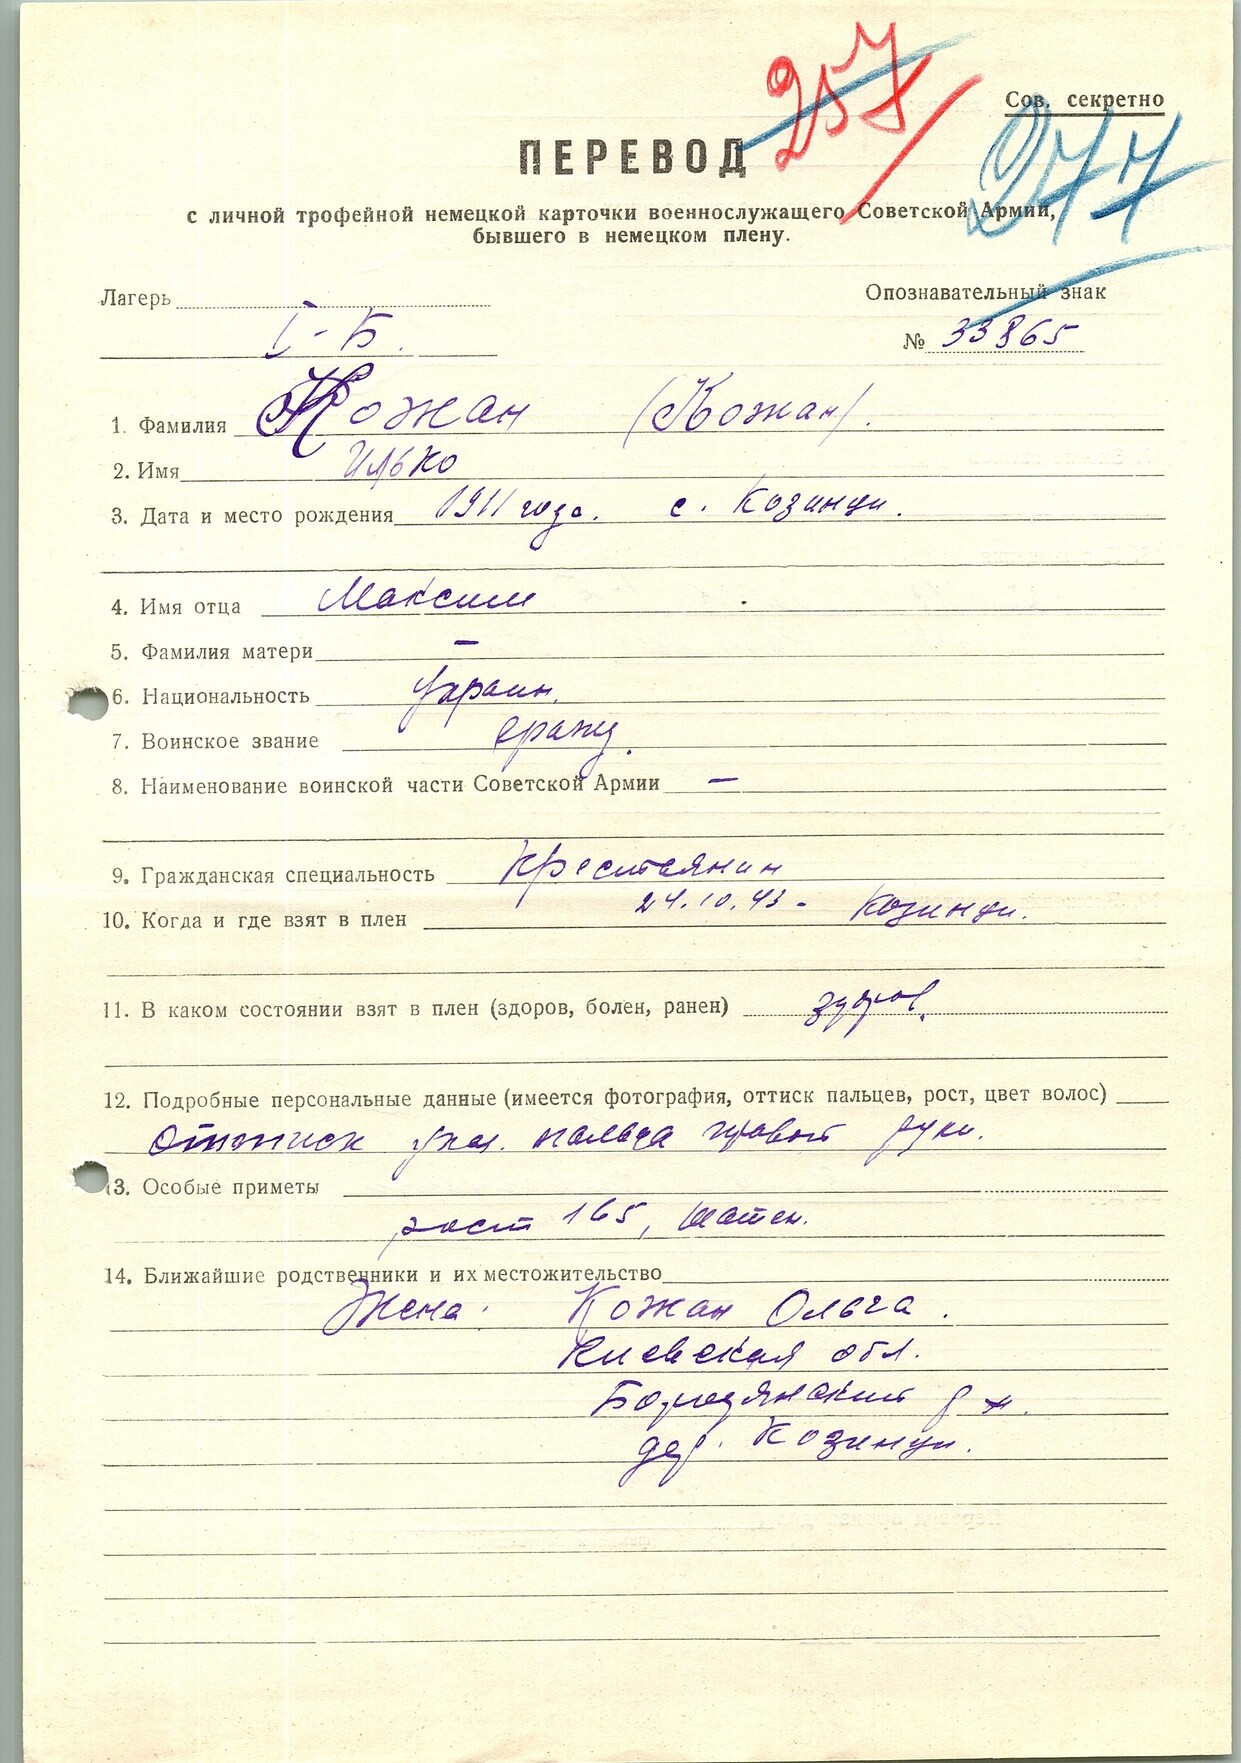 257
Сов. секретно
277
ПЕРЕВОД
с личной трофейной немецкой карточки военнослужащего Советской Армии,
бывшего в немецком плену.
Лагерь
Опознавательный знак
I-Б.
№ 33865
1. Фамилия Кожан (Кожан).
2. Имя Илько
3. Дата и место рождения 1911 года. с. Козинци.
4. Имя отца Максим
5. Фамилия матери —
6. Национальность Украин.
7. Воинское звание гражд.
8. Наименование воинской части Советской Армии —
9. Гражданская специальность Крестьянин
10. Когда и где взят в плен 24.10.43 - Козинци.
11. В каком состоянии взят в плен (здоров, болен, ранен) здоров.
12. Подробные персональные данные (имеется фотография, оттиск пальцев, рост, цвет волос)
Оттиск указ. пальца правой руки.
13. Особые приметы
рост 165, шатен.
14. Ближайшие родственники и их местожительство
Жена: Кожан Ольга.
Киевская обл.
Бородянский р-н.
дер. Козинци.